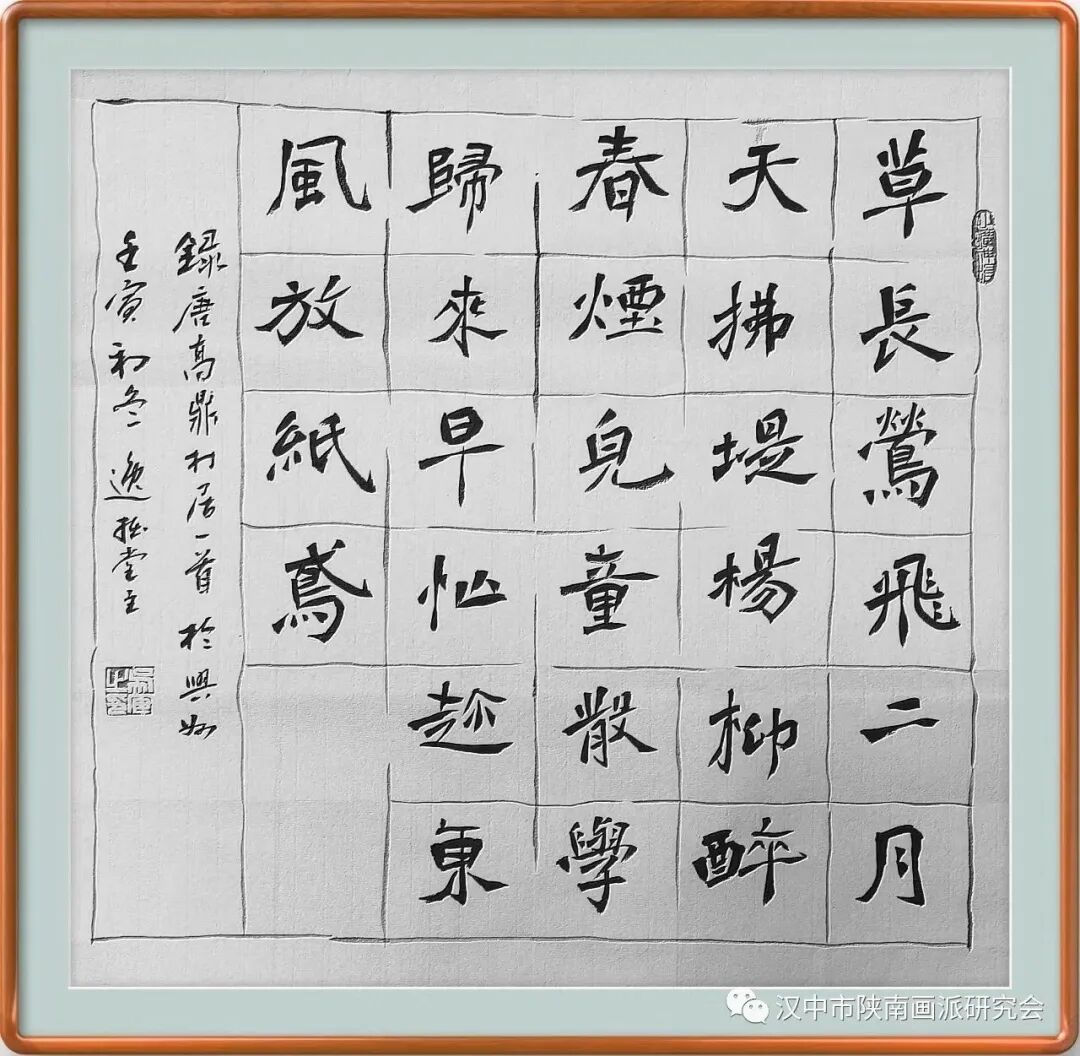 草長鶯飛二月
天拂堤楊柳醉
春煙兒童散學
歸來早忙趂東
風放紙鳶
錄唐高鼎村居一首 於興州
壬寅初冬 逸堂主
汉中市陕南画派研究会